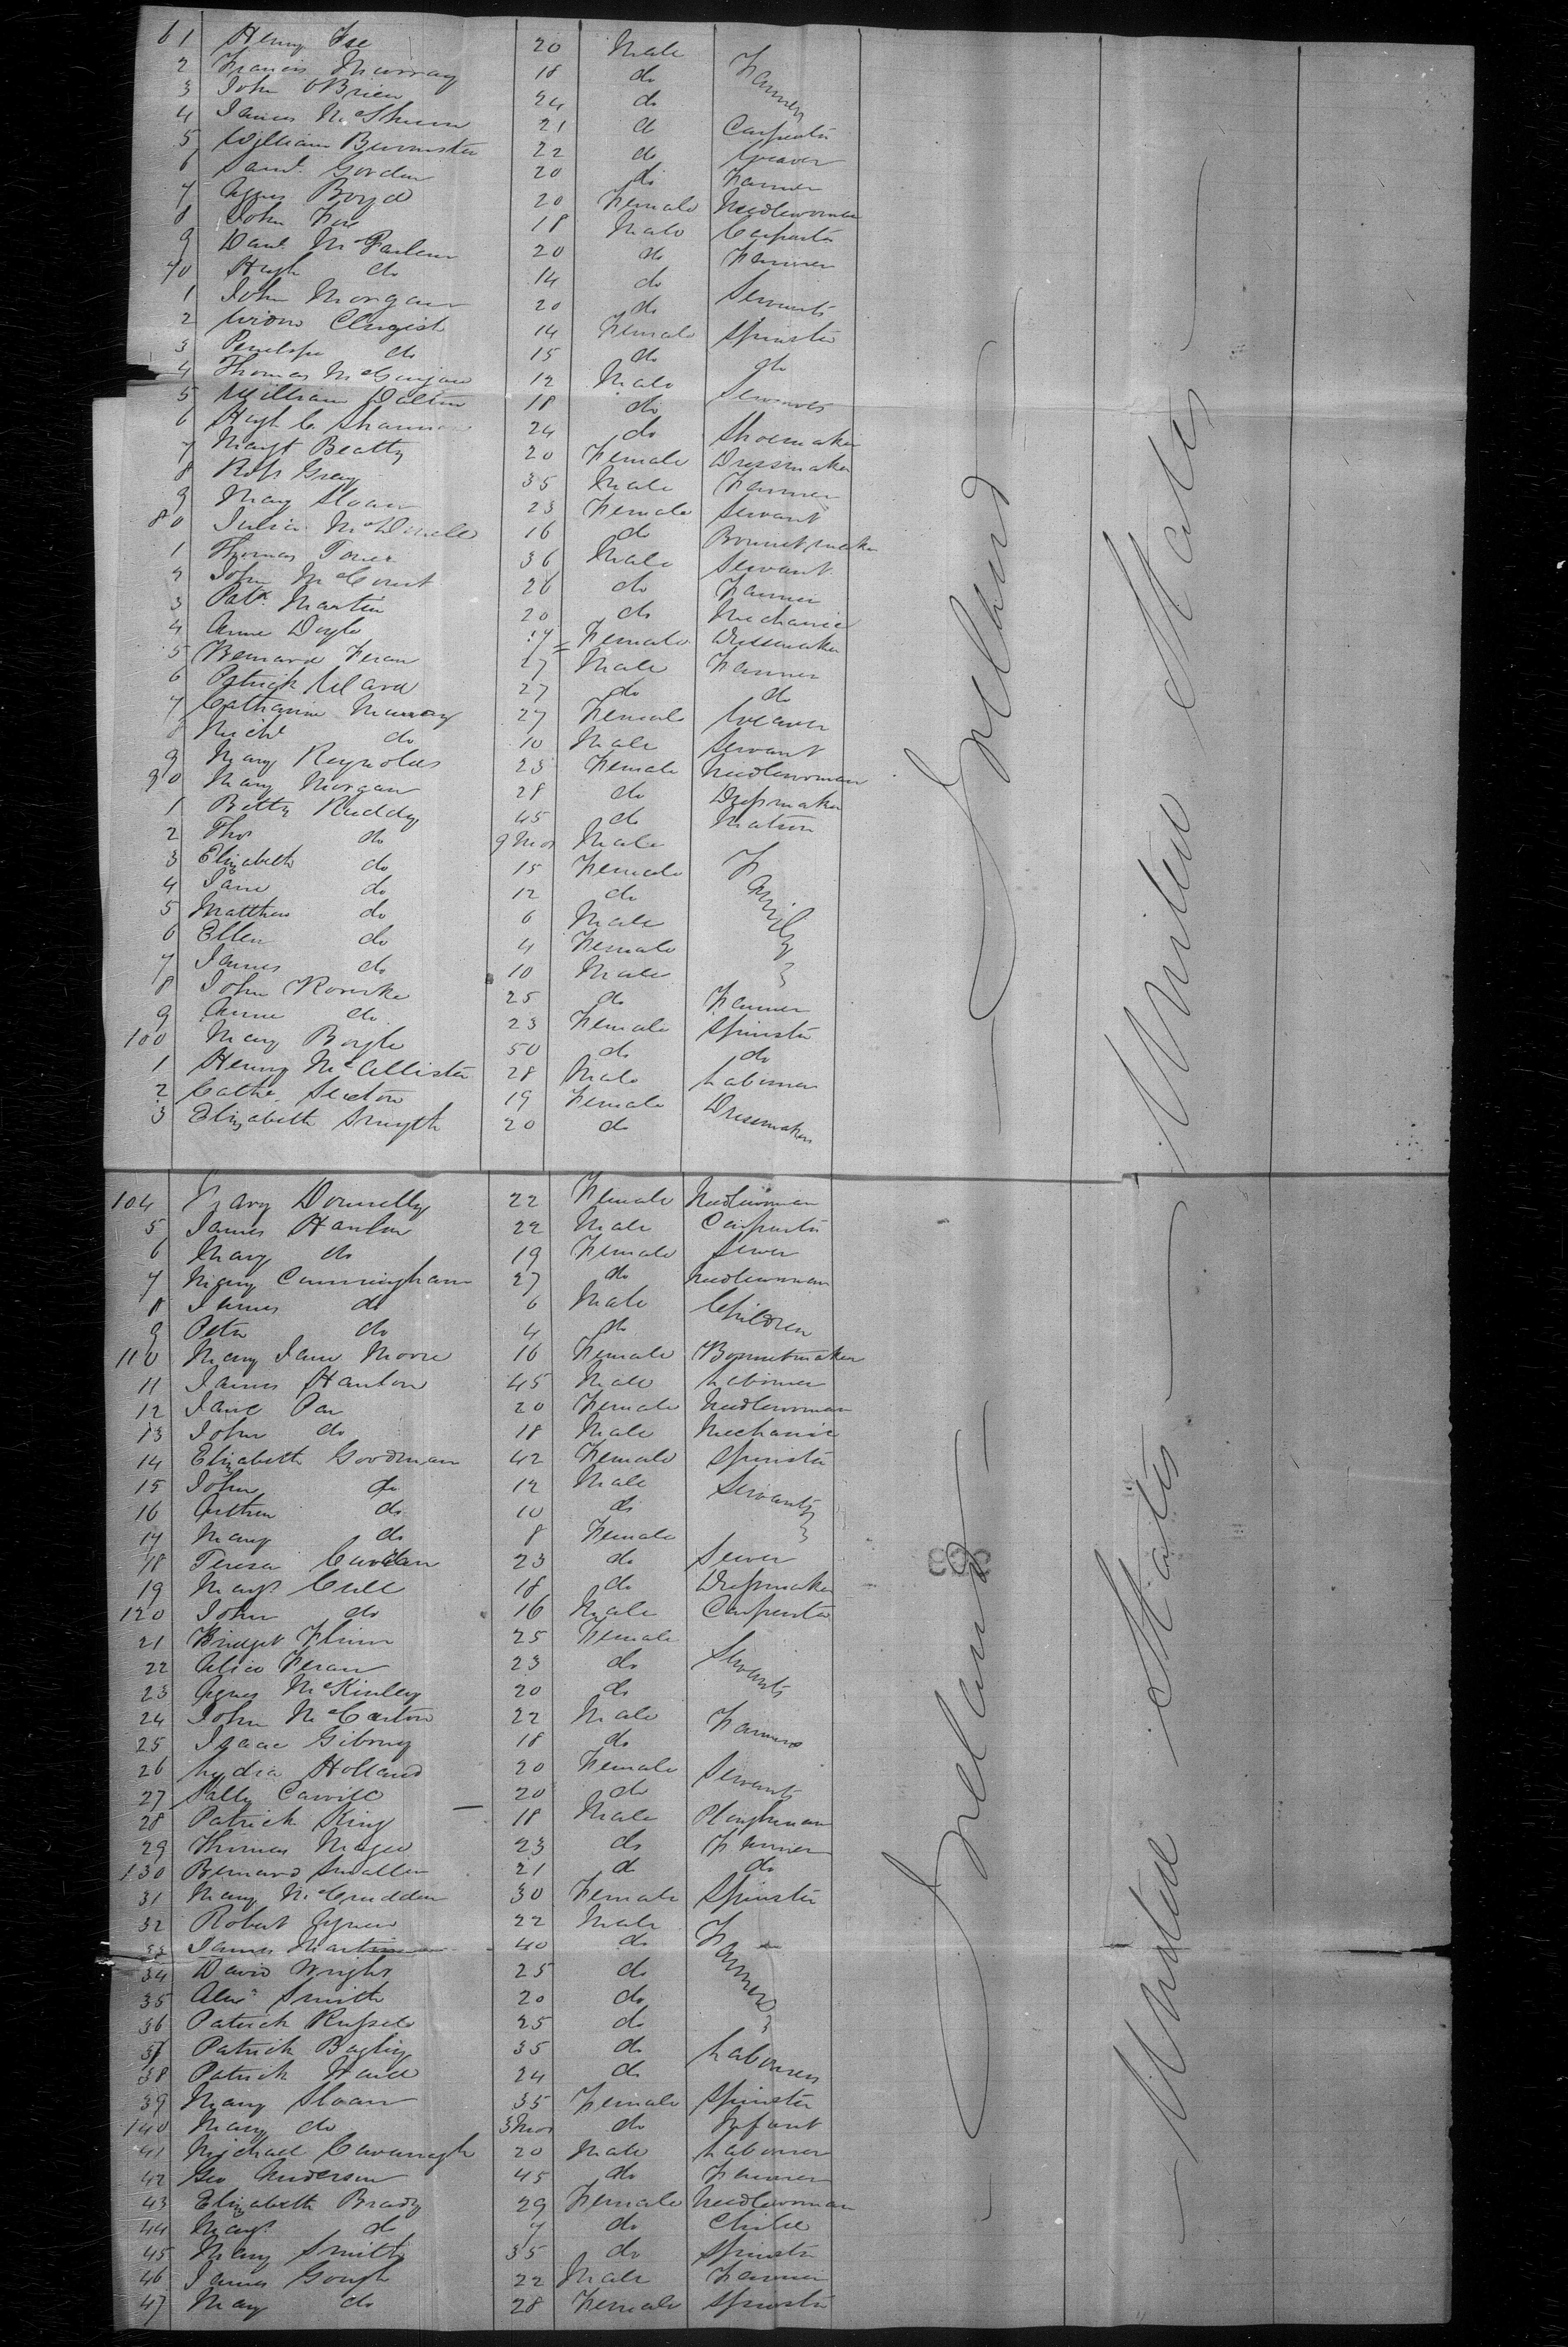 61 Henry Fee 20 Male
2 Francis Murray 18 do Farmers
3 John OBrien 24 do
4 James McShane 21 do Carpenter
5 William Burmister 22 do Weaver
6 Saml. Gordon 20 do Farmer
7 Agnes Boyd 20 Female Needlewoman
8 John Fee 18 Male Carpenter
9 Danl. McParlan 20 do Farmer
70 Hugh do 14 do
1 John Morgan 20 do Servants
2 Clugish 14 Female Spinster
3 Penelope do 15 do do
4 Thomas 12 Male
5 William Dalton 18 do
6 Hugh C. Shannon 24 do Shoemaker
7 Margt Beatty 20 Female Dressmaker
8 Robt Gray 35 Male Farmer
9 Mary Sloan 23 Female Servant
80 Julia McDonald 16 do Bonnetmaker
1 Thomas 36 Male Servant
2 John McCourt 26 do Farmer
3 Patk. Martin 20 do Mechanic
4 Anne Doyle 17 Female Dressmaker
5 Bernard Feran 27 Male Farmer
6 Patrick Ward 27 do do
7 Catharine Murray 27 Female Weaver
8 Michl do 10 Male Servant
9 Mary Reynolds 23 Female Needlewoman
90 Mary Morgan 28 do Dressmaker
1 Betty Ruddy 45 do Matron
2 Thos do 9 Mos Male
3 Elizabeth do 15 Female Family
4 Jane do 12 do
5 Matthew do 6 Male
6 Ellen do 4 Female
7 James do 10 Male
8 John Rourke 25 do Farmer
9 Anne do 23 Female Spinster
100 Mary Boyle 50 do do
1 Henry McAllister 28 Male Labourer
2 Cathe. Sexton 19 Female
3 Elizabeth Smyth 20 do Dressmakers
Ireland
United States
104 Mary Donnelly 22 Female Needlewoman
5 James Hanlon 22 Male Carpenter
6 Mary do 19 Female Sewer
7 Mary Cunningham 27 do Needlewoman
8 James do 6 Male Children
9 Peter do 4 do
110 Mary Jane Moore 16 Female Bonnetmaker
11 James Hanlon 45 Male Labourer
12 Jane Par 20 Female Needlewoman
13 John do 18 Male Mechanic
14 Elizabeth Goodman 42 Female Spinster
15 John do 12 Male Servants
16 Arthur do 10 do
17 Mary do 8 Female
18 Teresa 23 do Sewer
19 Margt. Cull 18 do Dressmaker
120 John do 16 Male Carpenter
21 Bridget Flinn 25 Female
22 Alice Feran 23 do Servants
23 Agnes McKinley 20 do
24 John McCarton 22 Male Farmers
25 Isaac Gibony 18 do
26 Lydia Holland 20 Female Servants
27 Sally Carvill 20 do
28 Patrick King 18 Male Ploughman
29 Thomas Magee 23 do Farmer
130 Bernard Smallen 21 do do
31 Mary McCrudden 30 Female Spinster
32 Robert Agnew 22 Male
33 James Martin 40 do Farmers
34 David Wright 25 do
35 Alexr Smith 20 do
36 Patrick Russell 25 do
37 Patrick Bagley 35 do Labourers
38 Patrick 24 do
39 Mary Sloan 35 Female Spinster
140 Mary do 3 Mos do Infant
41 Michael Cavanagh 20 Male Labourer
42 Geo Anderson 45 do Farmer
43 Elizabeth Brady 29 Female Needlewoman
44 Margt. do 7 do Child
45 Mary Smith 35 do Spinster
46 James Gough 22 Male Farmer
47 Mary do 28 Female Spinster
Ireland
United States